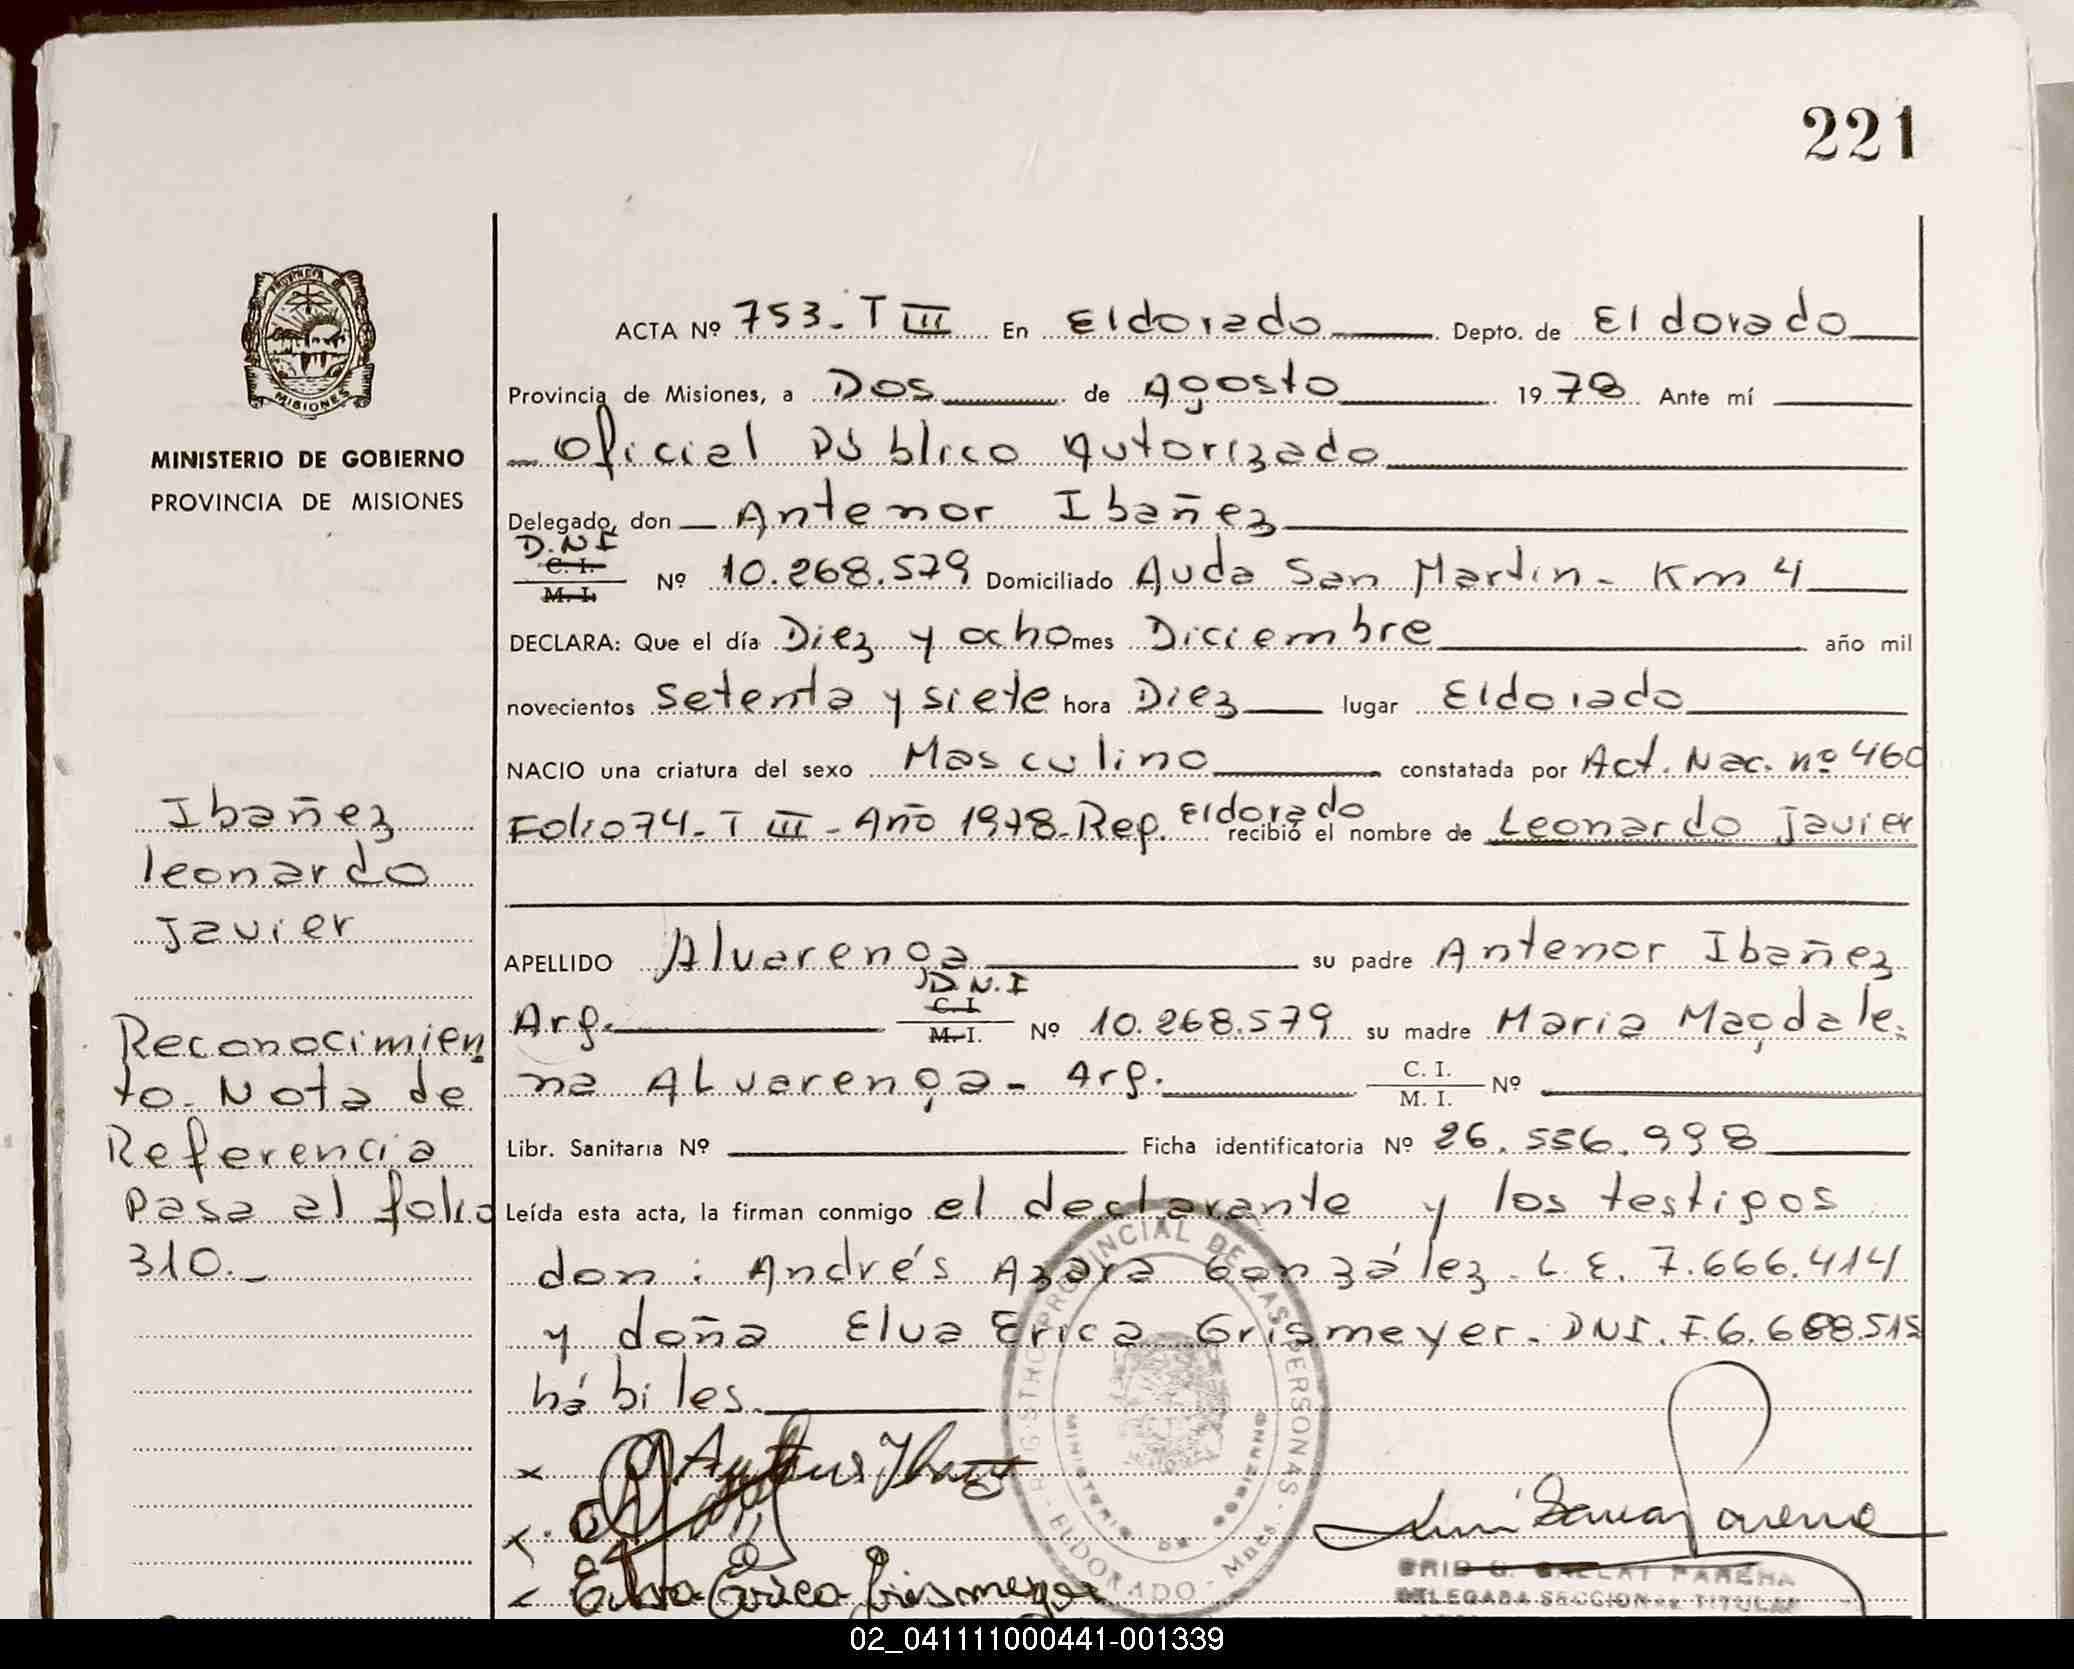 221
PROVINCIA
MISIONES
MINISTERIO DE GOBIERNO
PROVINCIA DE MISIONES
ACTA Nº 753. T III En Eldorado Depto. de Eldorado
Provincia de Misiones, a Dos de Agosto 1978 Ante mí
Oficial Público Autorizado
Delegado, don Antenor Ibañez
D.N.I
C. I.
M. I. Nº 10.268.579 Domiciliado Avda San Martin - Km 4
DECLARA: Que el día Diez y ocho mes Diciembre año mil
novecientos setenta y siete hora Diez lugar Eldorado
NACIO una criatura del sexo Masculino constatada por Act. Nac. nº 460
Folio 74. T III - Año 1978. Rep. Eldorado recibió el nombre de Leonardo Javier
APELLIDO Alvarenga su padre Antenor Ibañez
D.N.I
C. I.
Arg. M. I. Nº 10.268.579 su madre Maria Magdale-
na Alvarenga - Arg. C. I. M. I. Nº
Libr. Sanitaria Nº Ficha identificatoria Nº 26.556.998
Leída esta acta, la firman conmigo el declarante y los testigos
don: Andrés Azara González. L.E. 7.666.414
y doña Elva Erica Grismeyer. DNI. F.6.688.515
hábiles.
Ibañez
Leonardo
Javier
Reconocimien
to. Nota de
Referencia
Pasa al folio
310.
REGISTRO PROVINCIAL DE LAS PERSONAS
MINISTERIO DE GOBIERNO
ELDORADO - Mnes.
Elva Erica Grismeyer
DELEGADA SECCION TITULAR
02_041111000441-001339